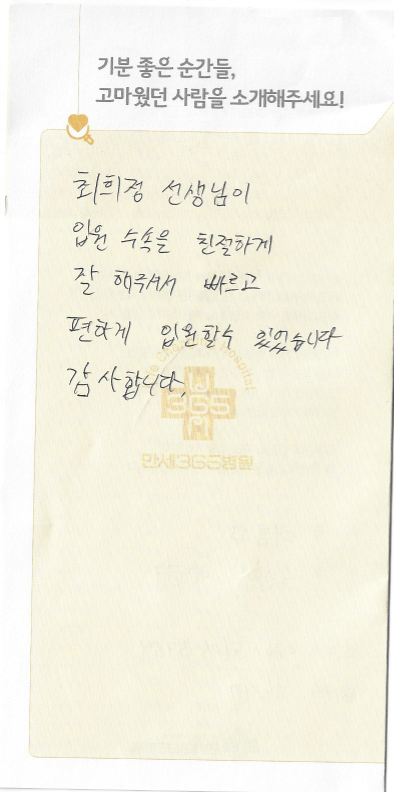 기분 좋은 순간들,
고마웠던 사람을 소개해주세요!
최희정 선생님이
입원 수속을 친절하게
잘 해주셔서 빠르고
편하게 입원할수 있었습니다
감사합니다.